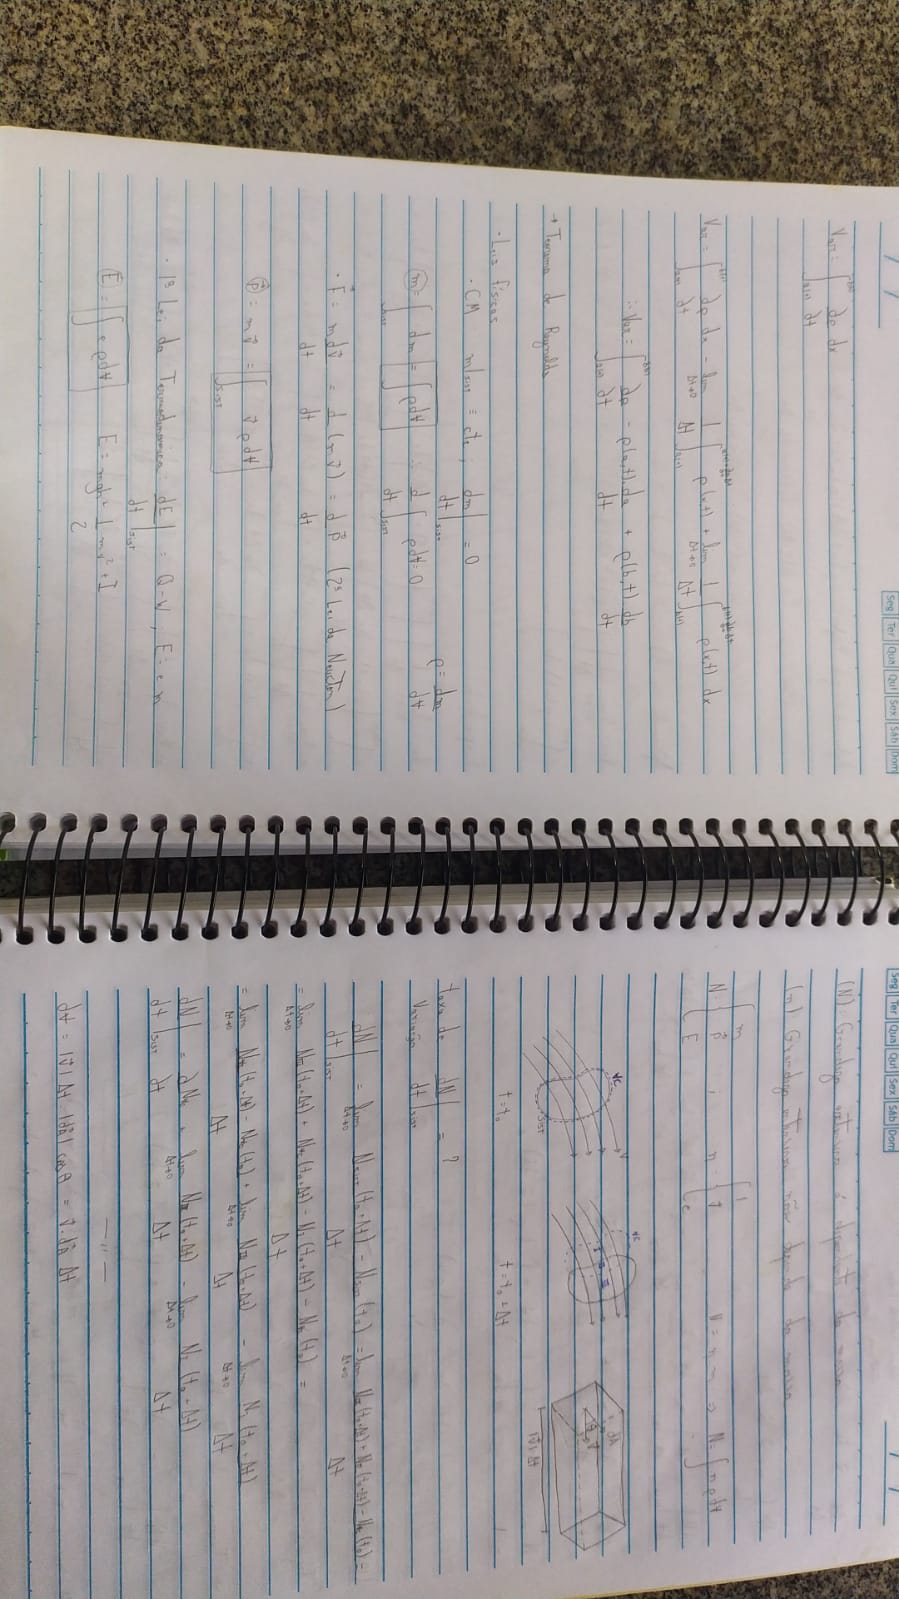 Seg Ter Qua Qui Sex Sáb Dom
V_arr = ∫_{a(t)}^{b(t)} ∂ρ/∂t dx
V_arr = ∫_{a(t)}^{b(t)} ∂ρ/∂t dx - lim_{Δt→0} 1/Δt ∫_{a(t)} ρ(x,t) + lim_{Δt→0} 1/Δt ∫_{b(t)} ρ(x,t) dx
∴ V_arr = ∫_{a(t)}^{b(t)} ∂ρ/∂t - ρ(a,t) da/dt + ρ(b,t) db/dt
→ Teorema de Reynolds
· Leis físicas
· CM m|sist = cte ; dm/dt|sist = 0
ρ = dm/d∀
m = ∫_{sist} dm = ∫ρd∀ ∴ d/dt ∫_{sist} ρd∀ = 0
· F⃗ = m dv⃗/dt = d/dt (m v⃗) = d/dt P⃗ (2ª Lei de Newton)
P⃗ = m v⃗ = ∫_{sist} v⃗ ρd∀
· 1ª Lei da Termodinâmica: dE/dt|sist = Q - W , E = e m
E = ∫ e ρd∀ E = mgh + 1/2 mv² + I
Seg Ter Qua Qui Sex Sáb Dom
(N): Grandeza extensiva é dependente da massa
(η): Grandeza intensiva não depende da massa
N: { m P⃗ E ; η = { 1 v⃗ e N = η m → N = ∫ η ρd∀
VC
sist
VC
I II III
dA
v⃗
|v⃗| Δt
t = t₀
t = t₀ + Δt
Taxa de Variação dN/dt|sist = ?
dN/dt|sist = lim_{Δt→0} N_sist(t₀+Δt) - N_sist(t₀) / Δt = lim_{Δt→0} N_III(t₀+Δt) + N_II(t₀+Δt) - N_VC(t₀) / Δt =
= lim_{Δt→0} N_III(t₀+Δt) + N_VC(t₀+Δt) - N_I(t₀+Δt) - N_VC(t₀) / Δt =
= lim_{Δt→0} N_VC(t₀+Δt) - N_VC(t₀) / Δt + lim_{Δt→0} N_III(t₀+Δt) / Δt - lim_{Δt→0} N_I(t₀+Δt) / Δt
dN/dt|sist = ∂N_VC/∂t + lim_{Δt→0} N_III(t₀+Δt) / Δt - lim_{Δt→0} N_I(t₀+Δt) / Δt
— " —
d∀ = |v⃗| Δt · |dA⃗| cosθ = v⃗ · dA⃗ Δt